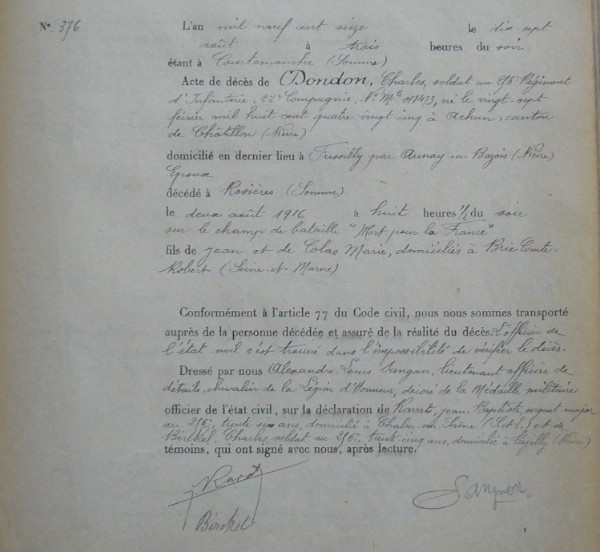 N° 376
L'an mil neuf cent seize le dix sept
août à trois heures du soir
étant à Courtemanche (Somme)
Acte de décès de DONDON, Charles, soldat au 256 Régiment
d'Infanterie, 22e Compagnie, N° Mle 017473, né le vingt-sept
février mil huit cent quatre vingt cinq à Achun, canton
de Châtillon (Nièvre)
domicilié en dernier lieu à par Aunay en Bazois (Nièvre)
Epoux
décédé à Rosières (Somme)
le deux août 1916 à huit heures ½ du soir
sur le champ de bataille "Mort pour la France"
fils de Jean et de Colas Marie, domiciliés à Brie Comte
Robert (Seine et Marne)
Conformément à l'article 77 du Code civil, nous nous sommes transporté
auprès de la personne décédée et assuré de la réalité du décès. L'officier de
l'état civil s'est trouvé dans l'impossibilité de vérifier le décès.
Dressé par nous Alexandre Louis Sangan, lieutenant officier de
détails, chevalier de la Légion d'Honneur, décoré de la Médaille militaire
officier de l'état civil, sur la déclaration de Jean Baptiste, sergent major
au 256, trente ans, domicilié à Chalon sur Saône (S et L) et de
Birckel, Charles, soldat au 256, trente cinq ans, domicilié à (Nièvre)
témoins, qui ont signé avec nous, après lecture.
Birckel